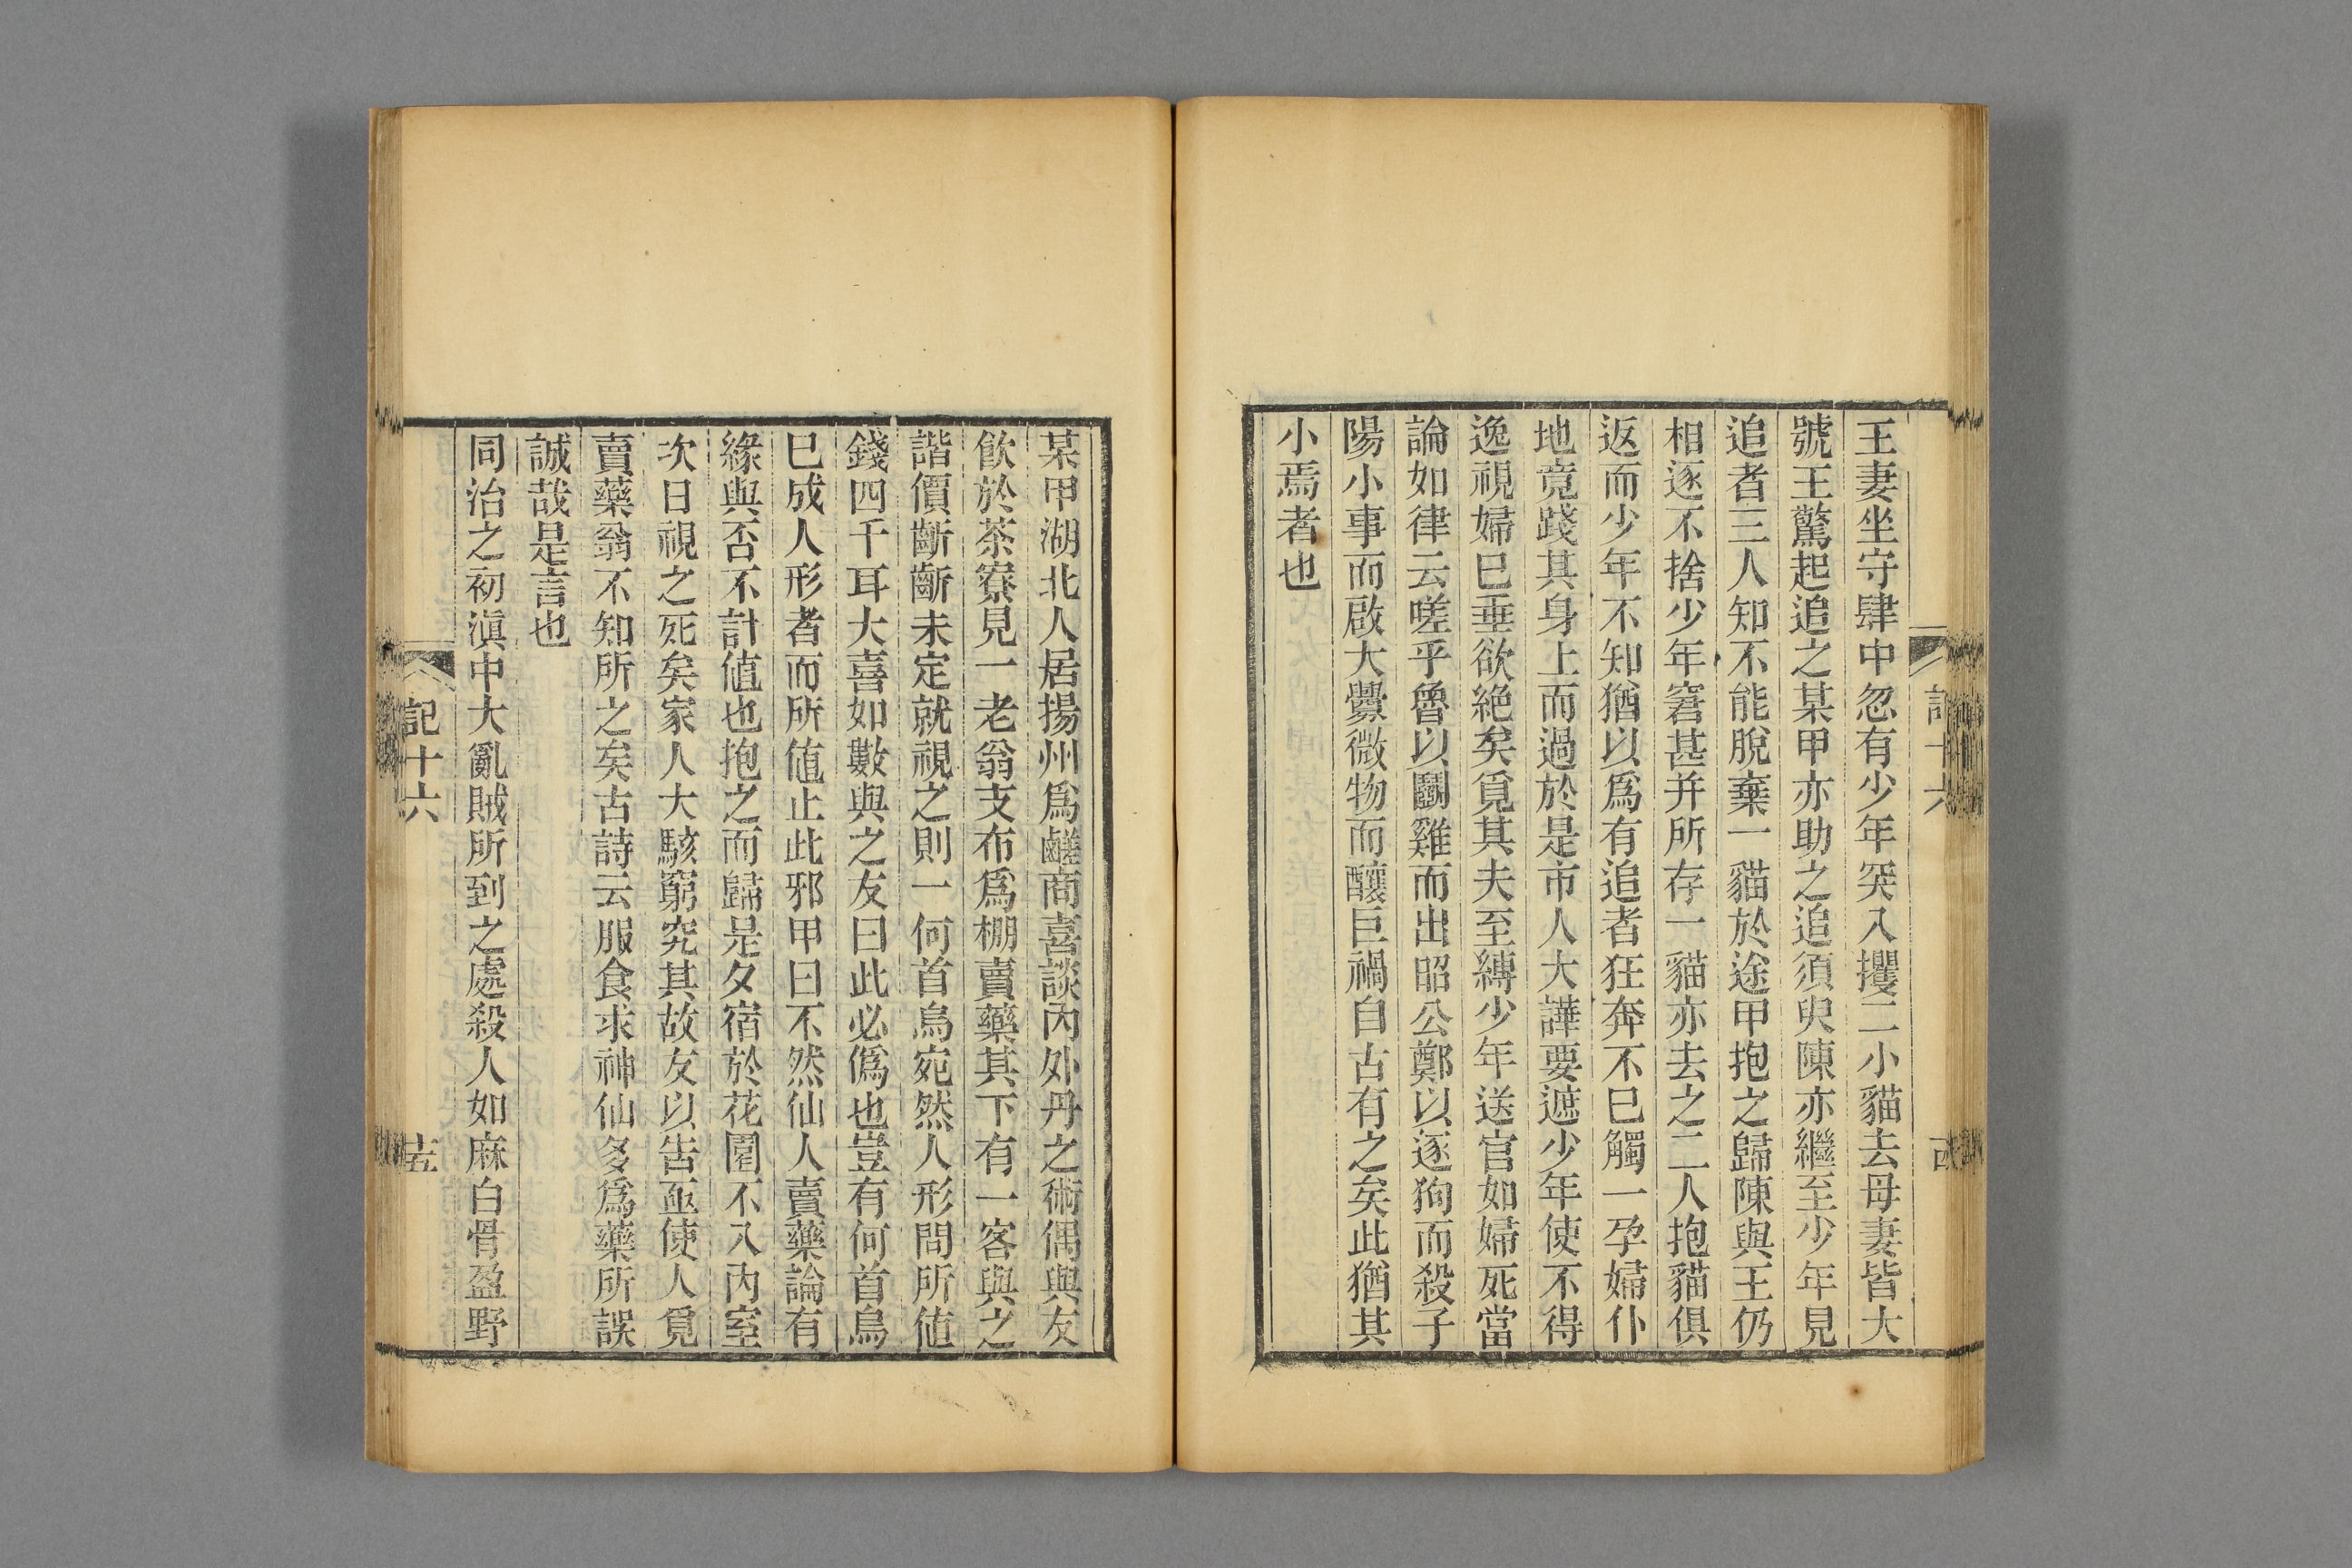 王妻坐守肆中忽有少年突入攫二小貓去母妻皆大
號王驚起追之某甲亦助之追須臾陳亦繼至少年見
追者三人知不能脫棄一貓於途甲抱之歸陳與王仍
相逐不捨少年窘甚并所存一貓亦去之二人抱貓俱
返而少年不知猶以爲有追者狂奔不已觸一孕婦仆
地竟踐其身上而過於是市人大譁要遮少年使不得
逸視婦已垂欲絶矣覓其夫至縛少年送官如婦死當
論如律云嗟乎魯以鬭雞而出昭公鄭以逐狗而殺子
陽小事而啟大釁微物而釀巨禍自古有之矣此猶其
小焉者也
某甲湖北人居揚州爲鹺商喜談內外丹之術偶與友
飮於茶寮見一老翁支布爲棚賣藥其下有一客與之
諧價齗齗未定就視之則一何首烏宛然人形問所値
錢四千耳大喜如數與之友曰此必僞也豈有何首烏
已成人形者而所値止此邪甲曰不然仙人賣藥論有
緣與否不計値也抱之而歸是夕宿於花園不入內室
次日視之死矣家人大駭窮究其故友以告亟使人覓
賣藥翁不知所之矣古詩云服食求神仙多爲藥所誤
誠哉是言也
同治之初滇中大亂賊所到之處殺人如麻白骨盈野
記十六
十五